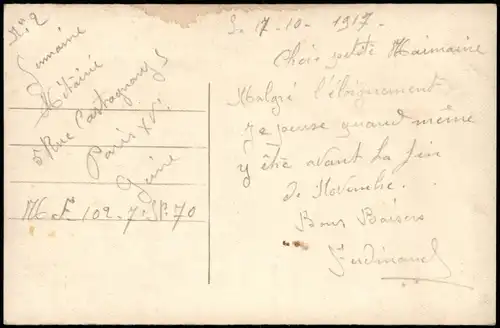 No 2
Germaine
Métairie
5 Rue Castagnary 5
Paris XV.
Seine
17-10-1917
Chère petite Maimaine
Malgré l'éloignement
je pense quand même
y être avant la fin
de Novembre.
Bons Baisers
Ferdinand